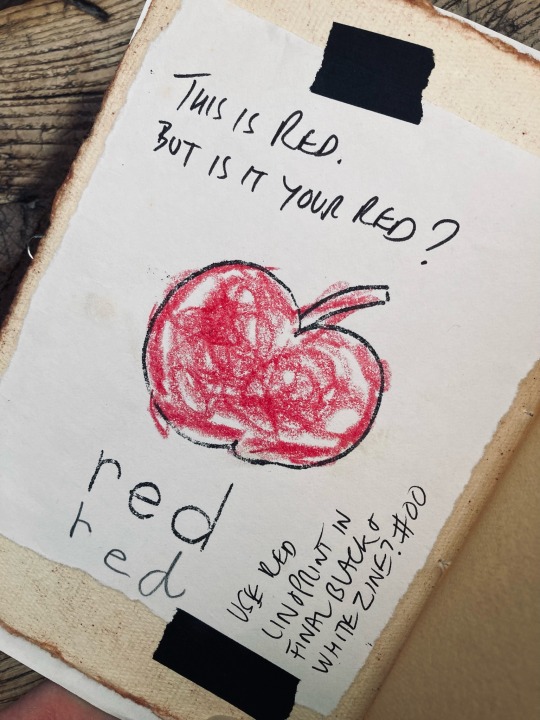 THIS IS RED.
BUT IS IT YOUR RED?
red
red
USE RED
LINOPRINT IN
FINAL BLACK &
WHITE ZINE? #00